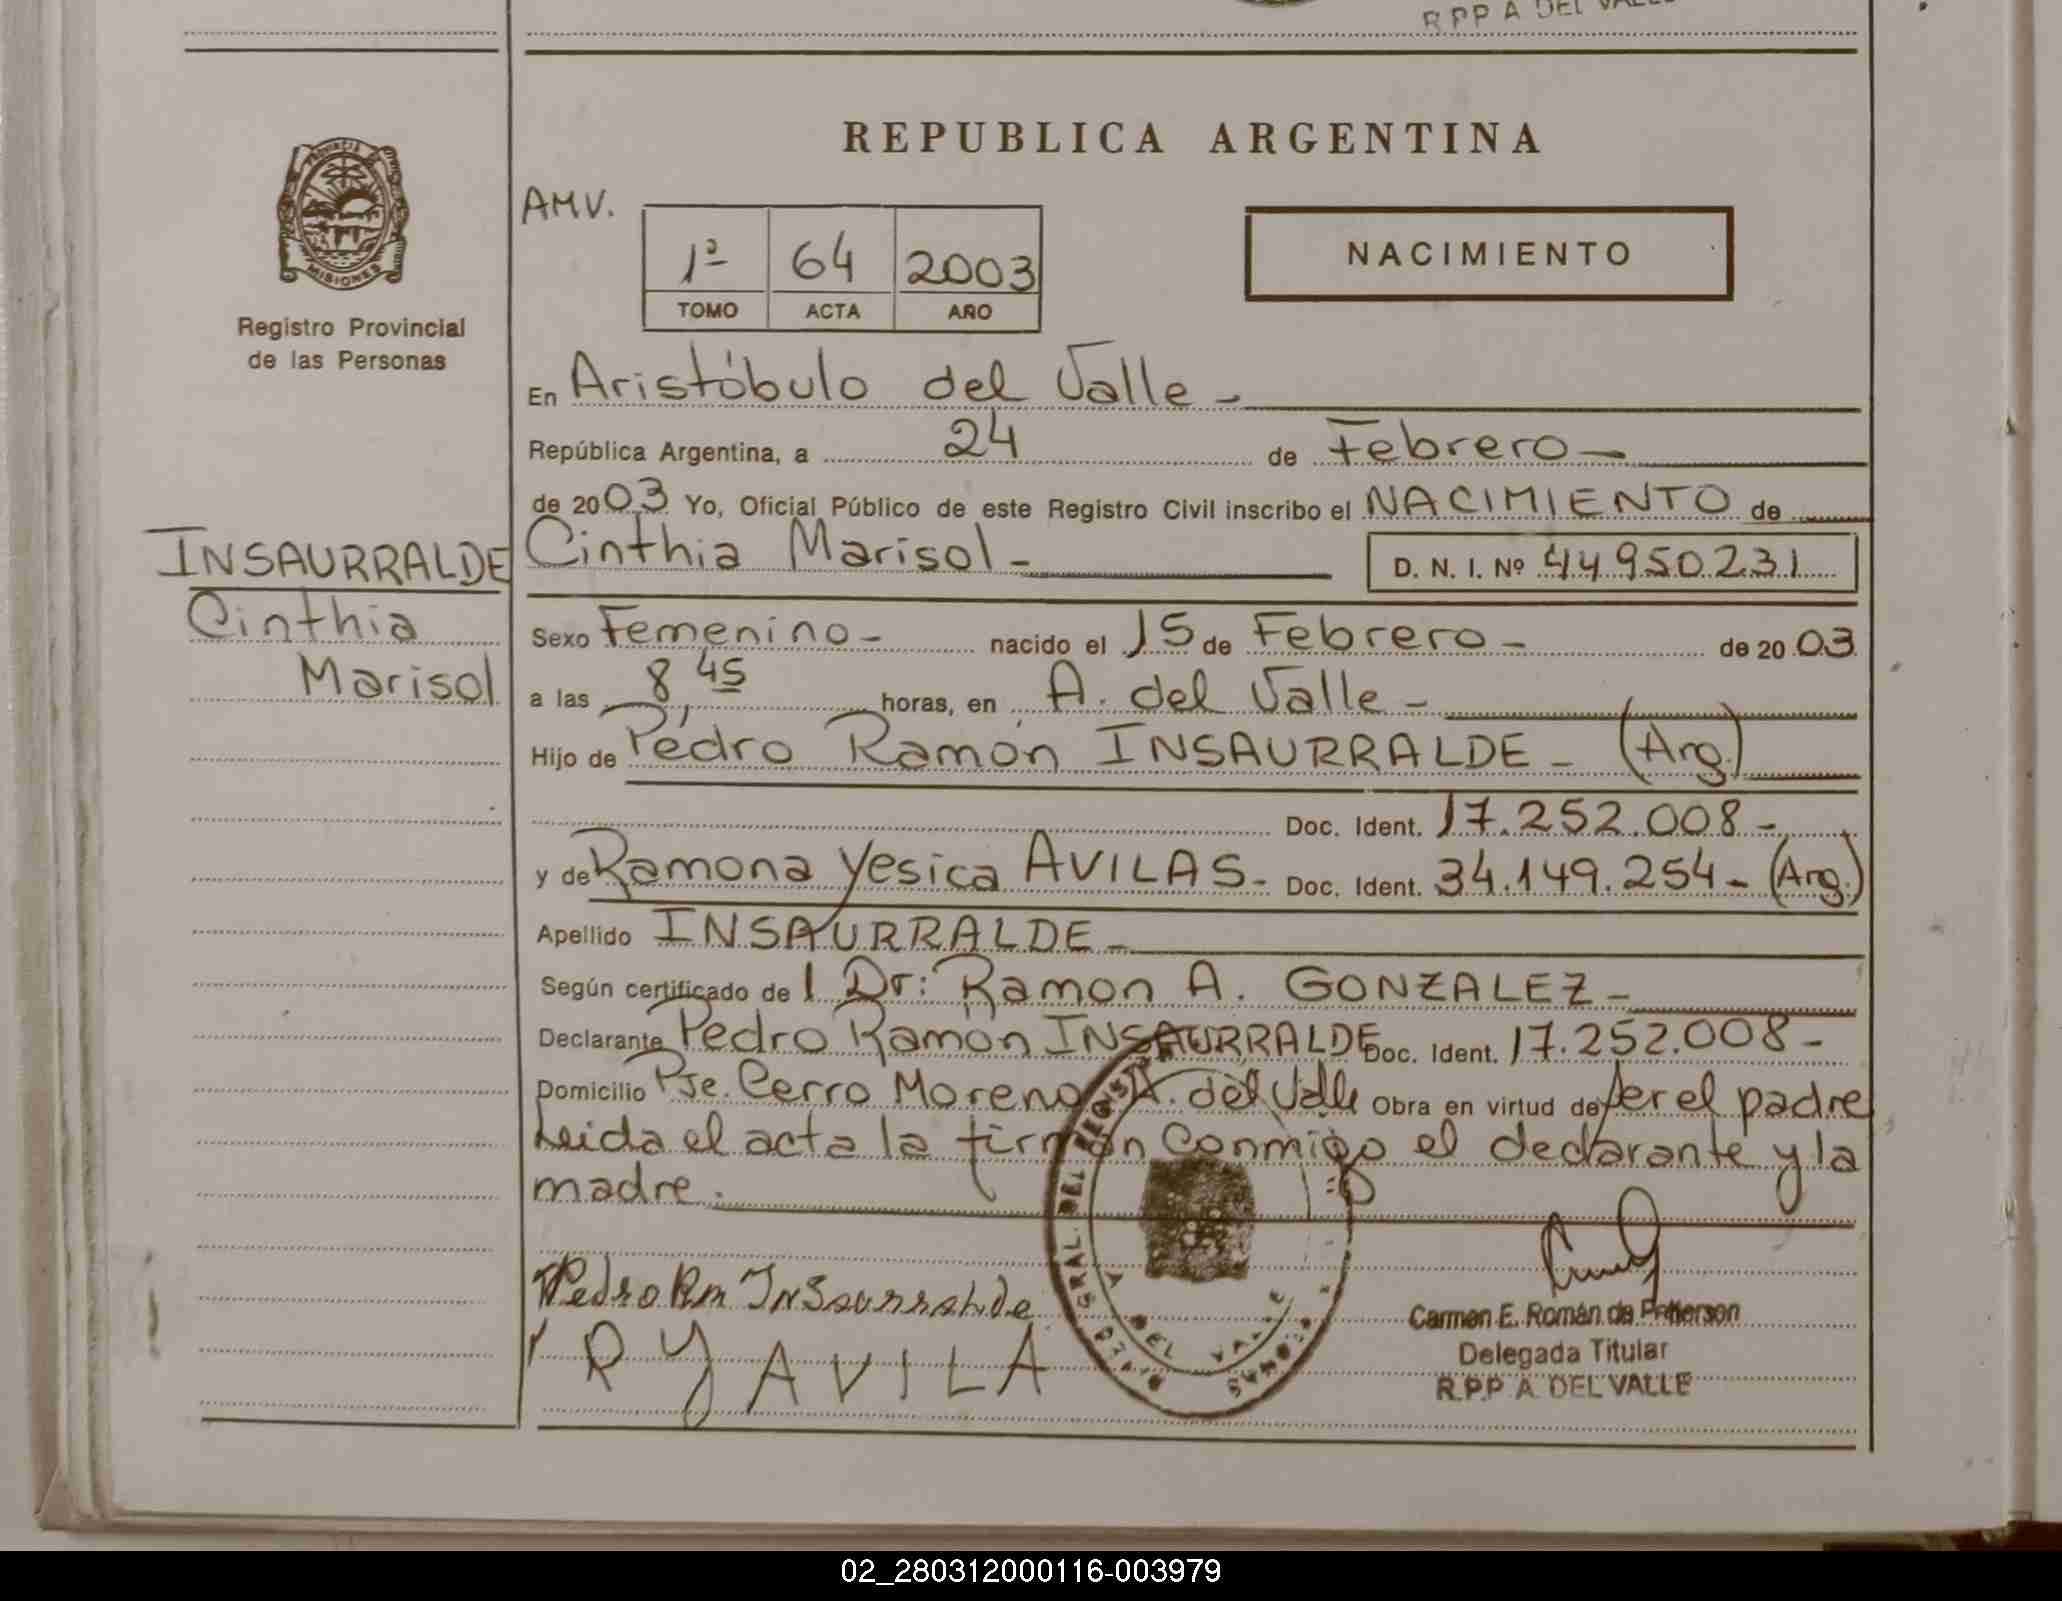 R.P.P A DEL VALLE
REPUBLICA ARGENTINA
PROVINCIA DE
MISIONES
Registro Provincial
de las Personas
AMV.
1º 64 2003
TOMO ACTA AÑO
NACIMIENTO
En Aristóbulo del Valle -
República Argentina, a 24 de Febrero -
de 2003 Yo, Oficial Público de este Registro Civil inscribo el NACIMIENTO de
INSAURRALDE
Cinthia
Marisol
Cinthia Marisol - D. N. I. Nº 44950231
Sexo Femenino - nacido el 15 de Febrero - de 2003
a las 8,45 horas, en A. del Valle -
Hijo de Pedro Ramón INSAURRALDE - (Arg.)
Doc. Ident. 17.252.008 -
y de Ramona Yesica AVILAS - Doc. Ident. 34.149.254 - (Arg.)
Apellido INSAURRALDE -
Según certificado de l Dr: Ramon A. GONZALEZ -
Declarante Pedro Ramón INSAURRALDE Doc. Ident. 17.252.008 -
Domicilio Pje. Cerro Moreno A. del Valle Obra en virtud de ser el padre
Leida el acta la firman conmigo el declarante y la
madre.
Pedro Rm INSaurralde
R Y AVILA
DEL VALLE
MISIONES
Carmen E. Román de Petterson
Delegada Titular
R.P.P A. DEL VALLE
02_280312000116-003979